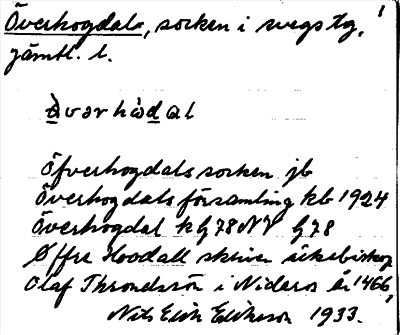 Överhogdals, socken i svegs tg,
jämtl. l.
Övərhòdal
Öfverhogdals socken jb
Överhogdals församling kb 1924
Överhogdal kg 78 NV G 78
Øffre Hoodall skriver ärkebiskop
Olaf Throndssön i Nidaros år 1466,
Nils Erik Eriksson 1933.